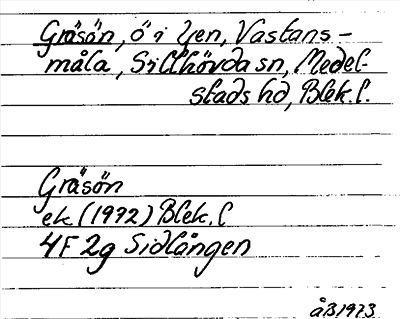 Gräsön, ö i Yen, Västans-
måla, Sillhövda sn, Medel-
stads hd, Blek. l.
Gräsön
ek (1972) Blek. l
4F 2g Sidlången
ÅB 1973